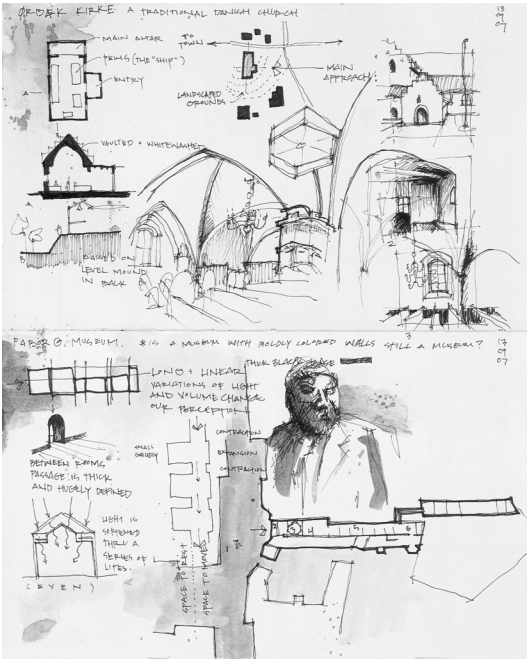 ØRBÆK KIRKE: A TRADITIONAL DANISH CHURCH
13
09
07
MAIN ALTAR
PEWS (THE "SHIP")
ENTRY
A
TO
TOWN
MAIN
APPROACH
LANDSCAPED
GROUNDS
VAULTED + WHITEWASHED
RAISED ON
LEVEL MOUND
IN BACK
FABORG MUSEUM.
IS A MUSEUM WITH BOLDLY COLORED WALLS STILL A MUSEUM?
13
09
07
THICK BLACK BASE
LONG + LINEAR
VARIATIONS OF LIGHT
AND VOLUME CHANGE
OUR PERCEPTION
SMALL
GALLERY
CONTRACTION
EXPANSION
CONTRACTION
BETWEEN ROOMS
PASSAGE IS THICK
AND HUGELY DEFINED
LIGHT IS
SOFTENED
THRU A
SERIES OF
LITES.
(EVEN)
SPACE TO REST
SPACE TO MOVE
3
4
5
6